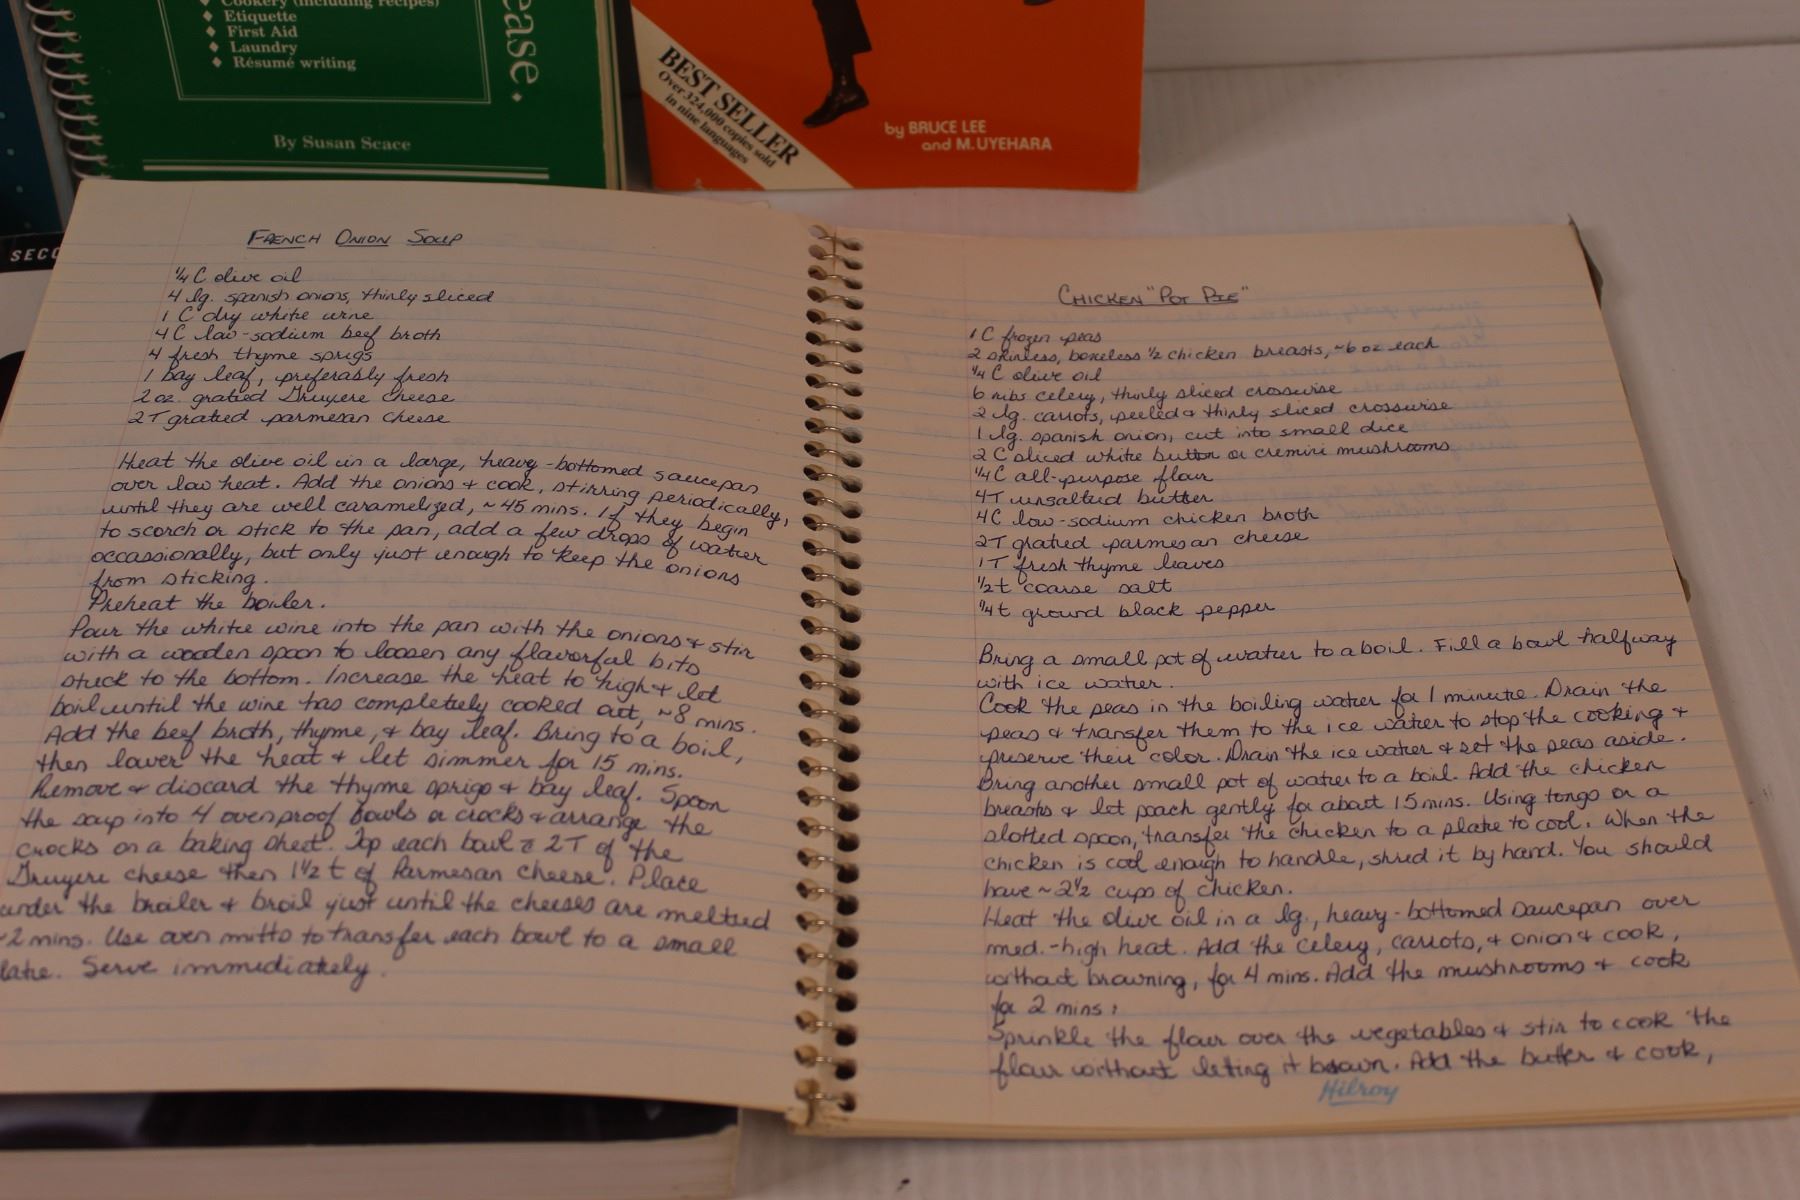 Cookery (including recipes)
Etiquette
First Aid
Laundry
Résumé writing
ease.
By Susan Scace
BEST SELLER
Over 324,000 copies sold
in nine languages
by BRUCE LEE
and M. UYEHARA
SECO
FRENCH ONION SOUP
1/4 C olive oil
4 lg. spanish onions, thinly sliced
1 C dry white wine
4 C low-sodium beef broth
4 fresh thyme sprigs
1 bay leaf, preferably fresh
2 oz. gratied Gruyere cheese
2 T gratied parmesan cheese
Heat the olive oil in a large, heavy-bottomed saucepan
over low heat. Add the onions + cook, stirring periodically,
until they are well caramelized, ~45 mins. If they begin
to scorch or stick to the pan, add a few drops of water
occassionally, but only just enough to keep the onions
from sticking.
Preheat the boiler.
Pour the white wine into the pan with the onions + stir
with a wooden spoon to loosen any flavorful bits
stuck to the bottom. Increase the heat to high + let
boil until the wine has completely cooked out, ~8 mins.
Add the beef broth, thyme, + bay leaf. Bring to a boil,
then lower the heat + let simmer for 15 mins.
Remove + discard the thyme sprigs + bay leaf. Spoon
the soup into 4 ovenproof bowls or crocks + arrange the
crocks on a baking sheet. Top each bowl c̄ 2T of the
Gruyere cheese then 1 1/2 t of Parmesan cheese. Place
under the broiler + broil just until the cheeses are melted
~2 mins. Use oven mitts to transfer each bowl to a small
late. Serve immediately.
CHICKEN "POT PIE"
1 C frozen peas
2 skinless, boneless 1/2 chicken breasts, ~6 oz each
1/4 C olive oil
6 ribs celery, thinly sliced crosswise
2 lg. carrots, peeled + thinly sliced crosswise
1 lg. spanish onion, cut into small dice
2 C sliced white button or cremini mushrooms
1/4 C all-purpose flour
4T unsalted butter
4C low-sodium chicken broth
2T gratied parmesan cheese
1T fresh thyme leaves
1/2 t coarse salt
1/4 t ground black pepper
Bring a small pot of water to a boil. Fill a bowl halfway
with ice water.
Cook the peas in the boiling water for 1 minute. Drain the
peas + transfer them to the ice water to stop the cooking +
preserve their color. Drain the ice water + set the peas aside.
Bring another small pot of water to a boil. Add the chicken
breasts + let poach gently for about 15 mins. Using tongs or a
slotted spoon, transfer the chicken to a plate to cool. When the
chicken is cool enough to handle, shred it by hand. You should
have ~2 1/2 cups of chicken.
Heat the olive oil in a lg., heavy-bottomed saucepan over
med.-high heat. Add the celery, carrots, + onion + cook,
without browning, for 4 mins. Add the mushrooms + cook
for 2 mins.
Sprinkle the flour over the vegetables + stir to cook the
flour without letting it brown. Add the butter + cook,
Hilroy